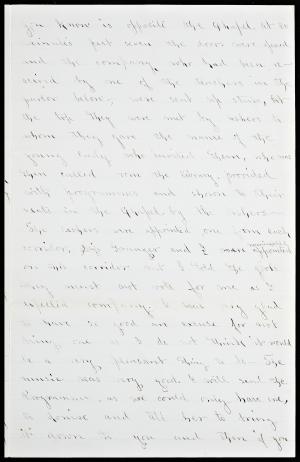 you know is opposite the Chapel. At 20
minutes past seven the doors were opened
and the company, who had been re-
ceived by one of the teachers in the
parlor below, were sent up stairs, At
the top they were met by ushers to
whom they gave the name of the
young lady who invited them, she was
then called from the library provided
with programmes and shown to their
seats in the Chapel by the ushers.
The ushers were appointed one from each
corridor, Lib and I were nominated appointed
on this corridor but I told the girls
they must not vote for me as I
expected company. I was very glad
to have so good an excuse for not
being one as I do not think it would
be a very pleasant thing to do. The
music was very good. I will send the
Programme, as we could only have one,
to Louise and tell her to bring
it down to you and then if you